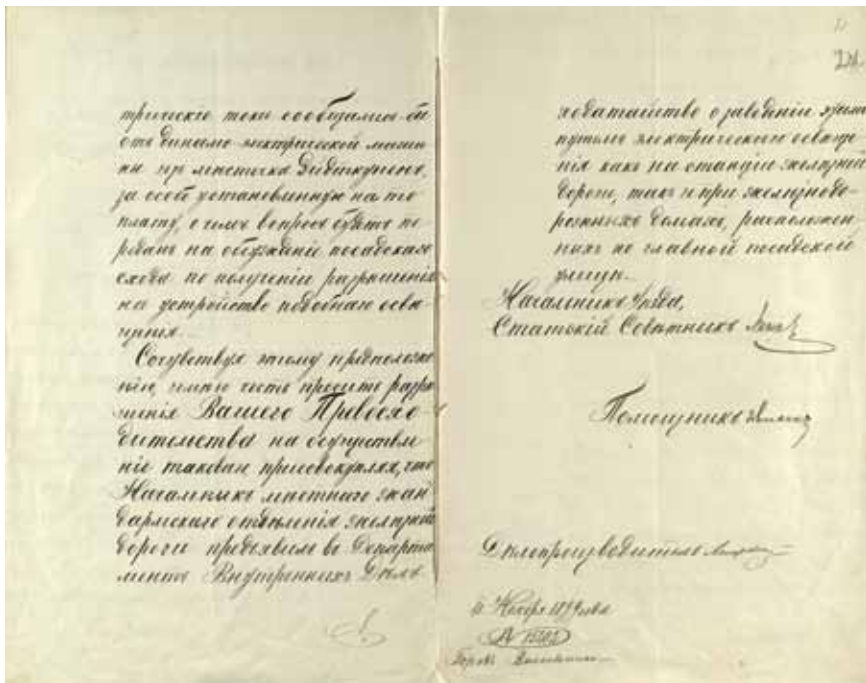 трическіе токи сообщались-бы
отъ динамо-электрической маши
ны изъ мѣстечка
за особо установленную на то
плату, о чемъ вопросъ будетъ пе
реданъ на обсужденіе посадскаго
схода по полученіи разрѣшенія
на устройство подобнаго освѣ
щенія.
Сочувствуя этому предположе
нію, имѣю честь просить разрѣ
шенія Вашего Превосхо
дительства на осуществле
ніе таковаго присовокупляя, что
Начальникъ мѣстнаго жан
дармскаго отдѣленія желѣзной
дороги предъявилъ въ Департа
ментъ Внутреннихъ Дѣлъ
ходатайство о заведеніи
путемъ электрическаго освѣще
нія какъ на станціи желѣзной
дороги, такъ и при желѣзнодо
рожныхъ домахъ, расположен
ныхъ по главной посадской
улицѣ.
Начальникъ Уѣзда,
Статскій Совѣтникъ
Помощникъ
Дѣлопроизводитель
Ноября 1899 года
№
Городъ